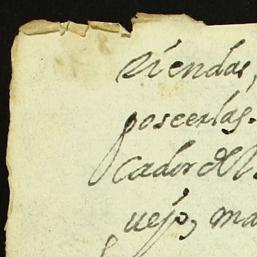 riendas,
poseerlas.
cador de
uejo, ma